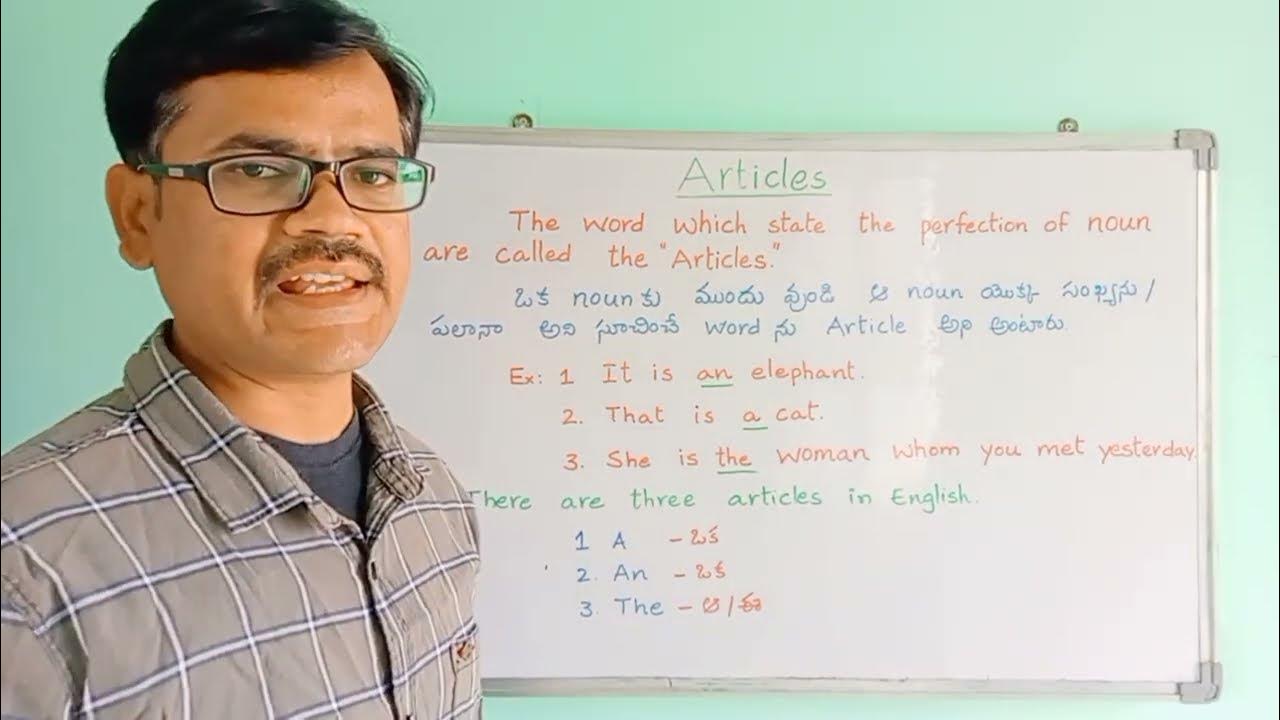 Articles
The word which state the perfection of noun
are called the "Articles."
ఒక noun కు ముందు వుండి ఆ noun యొక్క సంఖ్యను /
పలానా అని సూచించే word ను Article అని అంటారు.
Ex: 1 It is an elephant.
2. That is a cat.
3. She is the woman whom you met yesterday.
There are three articles in English.
1 A - ఒక
2. An - ఒక
3. The - ఆ / ఈ